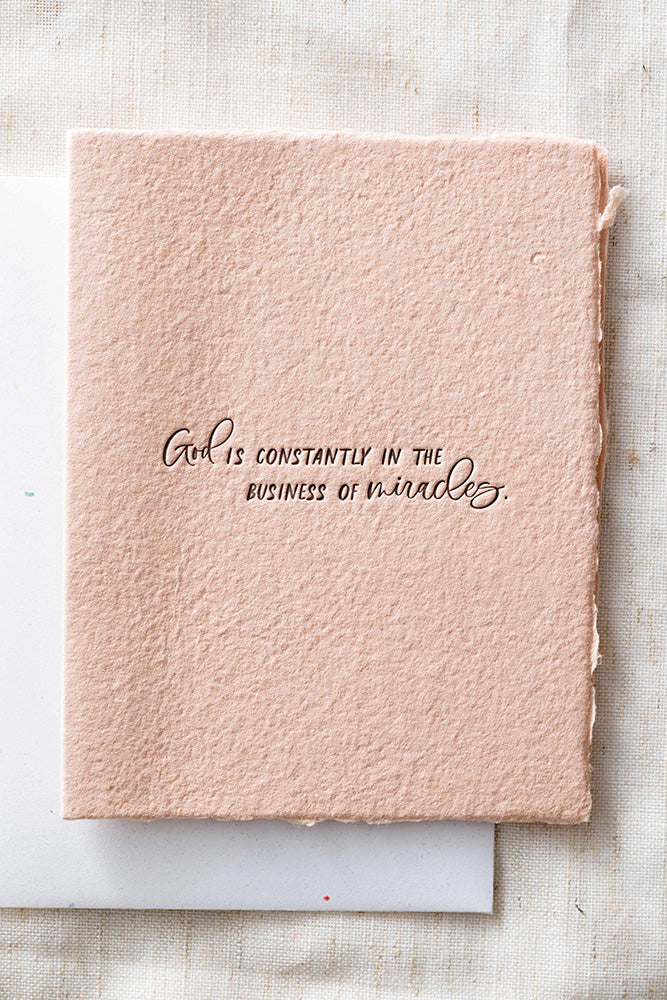 God IS CONSTANTLY IN THE
BUSINESS OF miracles.